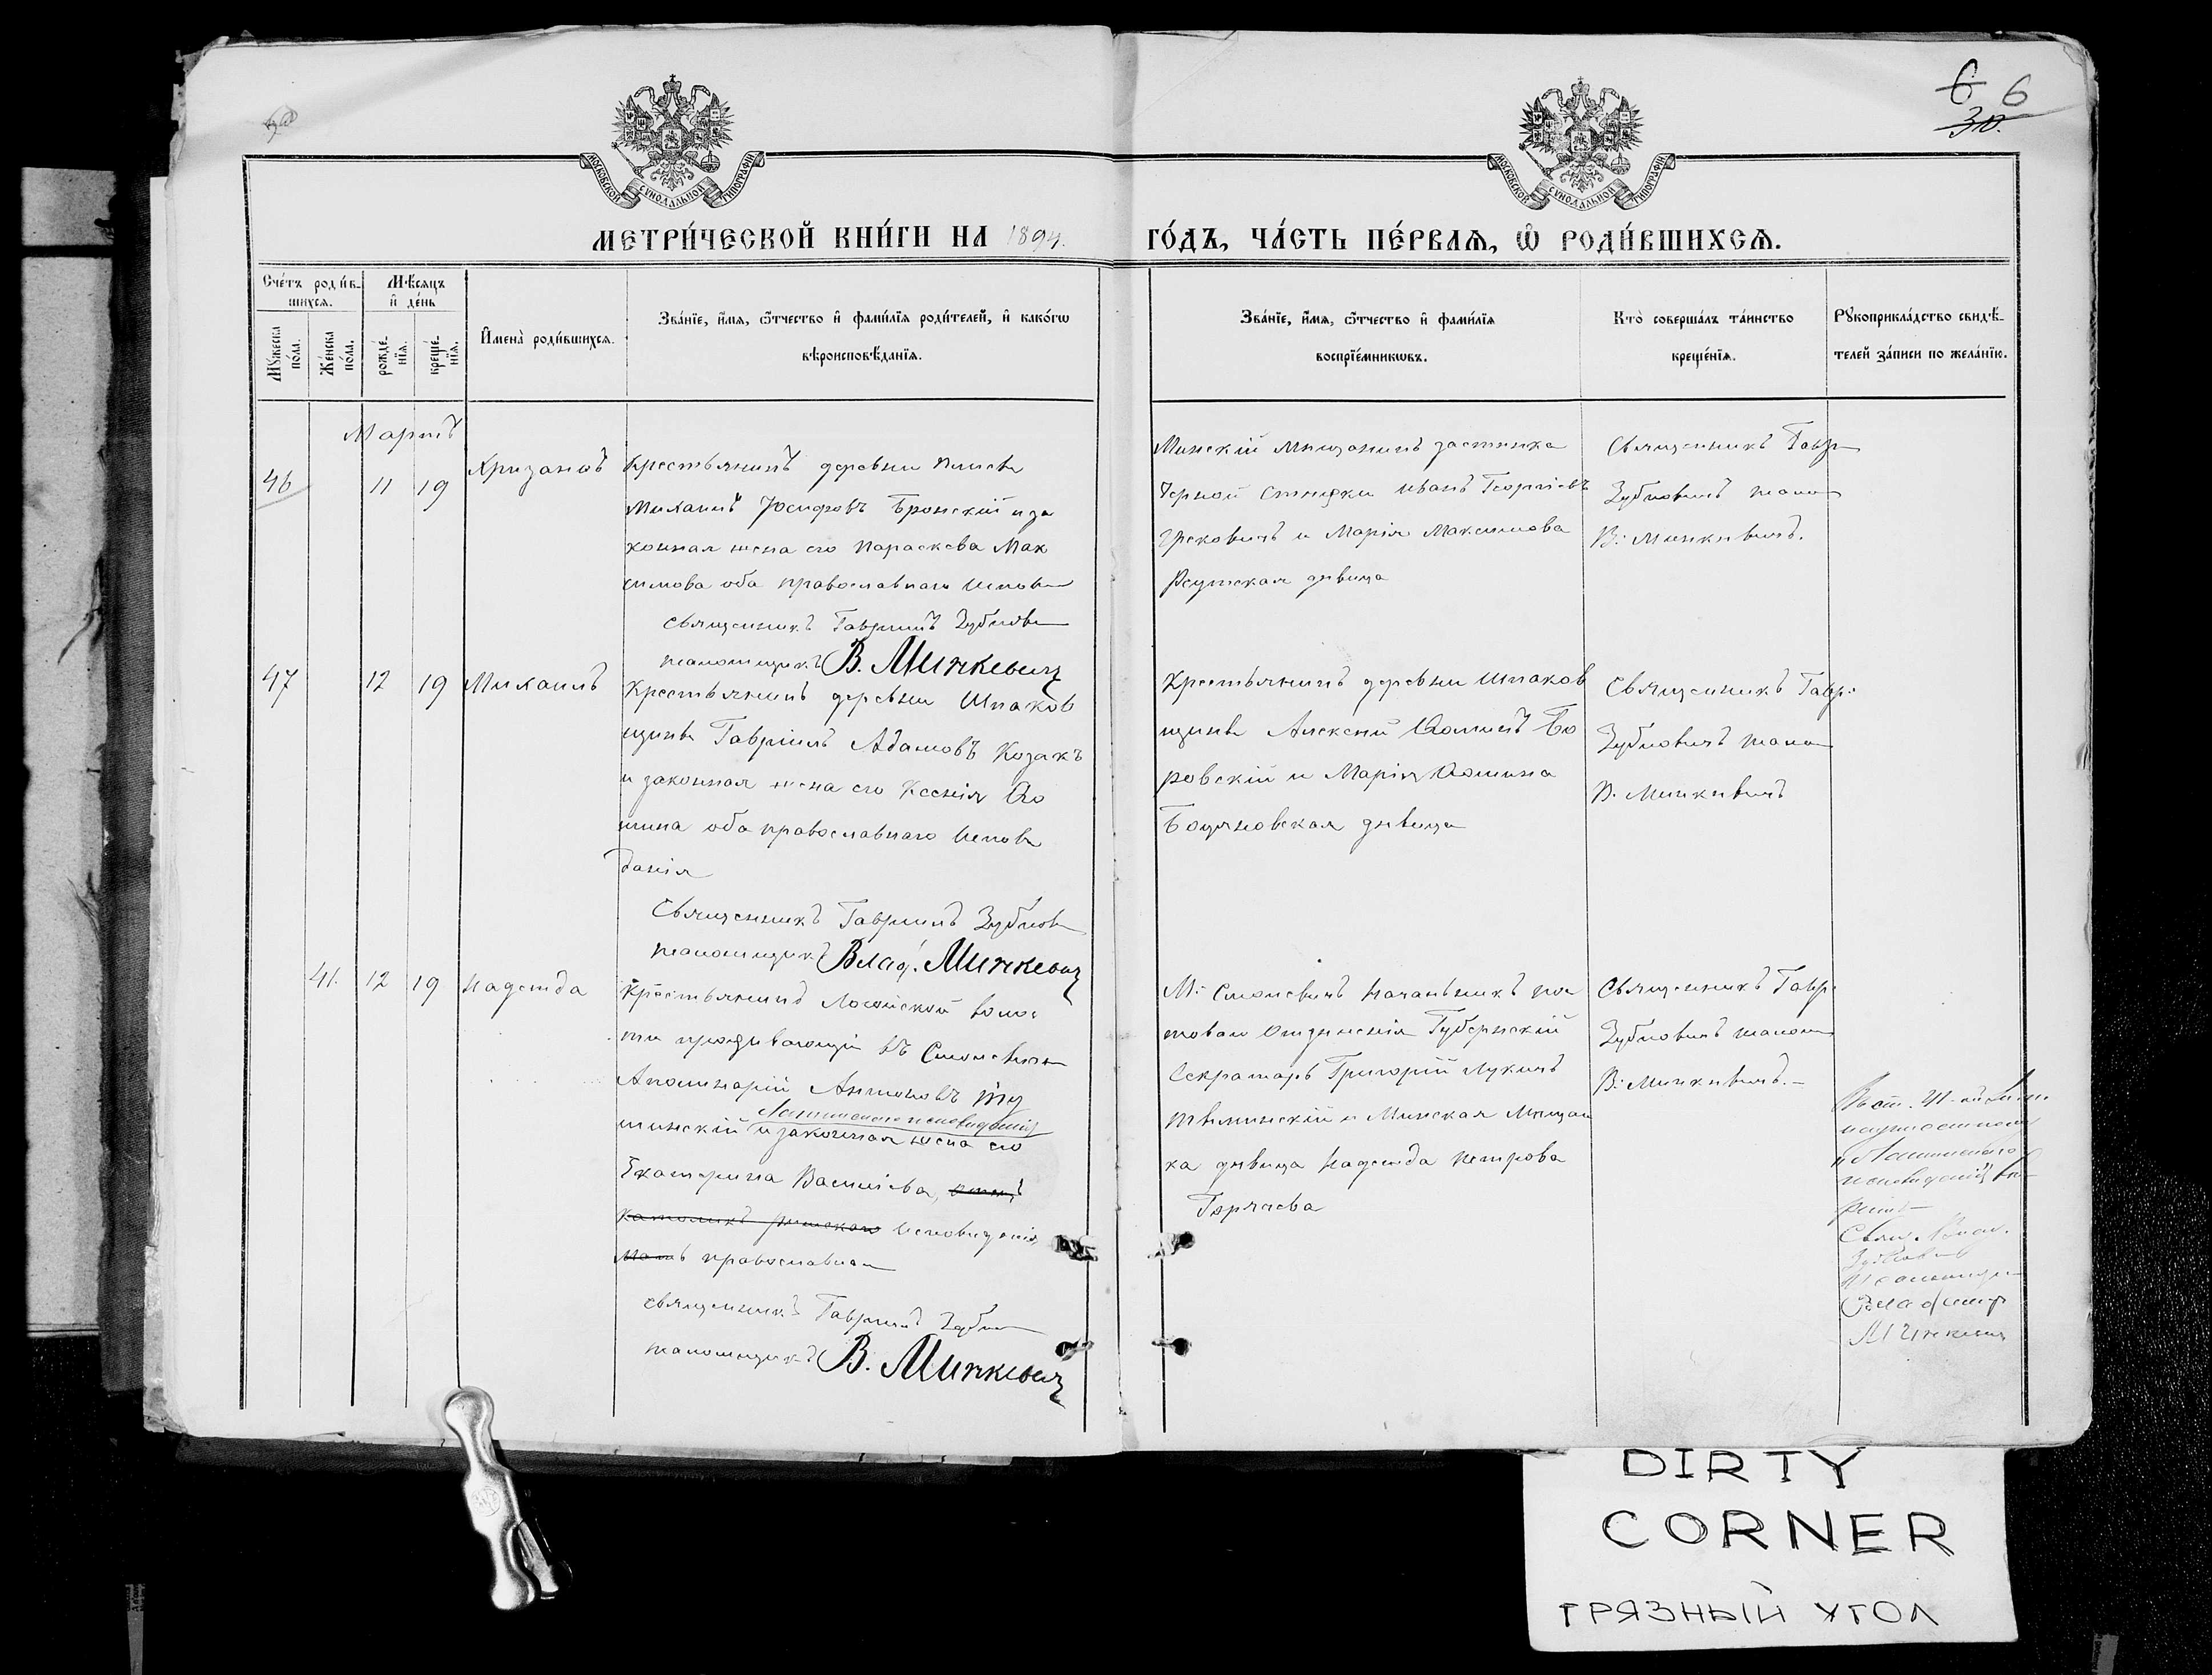 6 6
30.
МОСКОВСКОЙ СѴНОДАЛЬНОЙ ТИПОГРАФІИ
МОСКОВСКОЙ СѴНОДАЛЬНОЙ ТИПОГРАФІИ
МЕТРИ́ЧЕСКОЙ КНИ́ГИ НА 1894. ГО́ДЪ, ЧА́СТЬ ПЕ́РВАѦ, Ѡ҆ РОДИ́ВШИХСѦ.
Сче́тъ роди́в-
шихсѧ.
Мѣ́сѧцъ
и҆ де́нь
Мꙋ́жеска
по́ла.
Же́нска
по́ла.
рожде́-
нїѧ.
креще́-
нїѧ.
И҆мена̀ роди́вшихсѧ.
Зва́нїе, и҆́мѧ, ѻ҆́тчество и҆ фами́лїѧ роди́телей, и҆ како́гѡ
вѣроисповѣ́данїѧ.
Зва́нїе, и҆́мѧ, ѻ҆́тчество и҆ фами́лїѧ
воспрїе́мникѡвъ.
Кто̀ соверша́лъ та́инство
креще́нїѧ.
Рꙋкоприкла́дство свидѣ́-
телей за́писи по жела́нїю.
Мартъ
46 11 19 Хризанѳъ Крестьянинъ деревни
Михаилъ Іосифовъ Бронскій и за
конная жена его Параскева Мак
симова оба православнаго испов
священникъ Гавріилъ Зубков
псаломщикъ В. Мичкевич
Минскій мѣщанинъ застѣнка
Черной Стѣнки Иванъ Георгіевъ
Грековичъ и Марія Максимова
дѣвица
Священникъ Гавр
Зубковичъ псалом
В. Мичкевичъ.
47 12 19 Михаилъ Крестьянинъ деревни Шпаков
щины Гавріилъ Адамовъ Козакъ
и законная жена его Ксенія Ѳо
мина оба православнаго испов
данія
Священникъ Гавріилъ Зубков
псаломщикъ Влад. Мичкевич
Крестьянинъ деревни Шпаков
щины Алексѣй Ѳоминъ Бо
ровскій и Марія Ѳомина
дѣвица
Священникъ Гавр.
Зубковичъ псалом
В. Мичкевичъ
41. 12 19 Надежда Крестьянинъ Логойской волос
ти проживающій въ Смолевичи
Аполинарій Антоновъ
Латинскаго исповѣданія
шинскій и законная жена его
Екатерина Васильева, отецъ
католикъ римскаго исповѣданія
мать православная
священникъ Гавріилъ Зубк
псаломщикъ В. Мичкевич
М. Смолевичъ Начальникъ поч
товаго отдѣленія Губернскій
Секретарь Григорій Лукинъ
и Минская мѣщан
ка дѣвица Надежда Петрова
Горячева
Священникъ Гавр.
Зубковичъ псалом
В. Мичкевичъ.
"Латинскаго
исповѣданія"
Псаломщи
Владимір
Мичкевич
DIRTY
CORNER
ГРЯЗНЫЙ УГОЛ